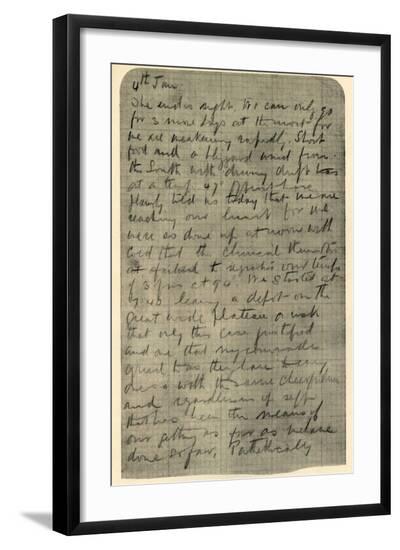 4th Jan.
The end is in sight. We can only go
for 3 more days at the most for
we are weakening rapidly. Short
food and a blizzard wind from
the South with driving drift
at a temp 47° of frost have
plainly told us today that we are
reaching our limit for we
were so done up at noon with
cold that the clinical thermometer
failed to register temps
of 3 men at 94°. We started at
7.40 leaving a depot on the
great wide plateau a risk
that only this case justified
and one that my comrades
agreed to as they have every
one with the same cheerfulness
and regardlessness of self
that has been the means of
our getting as far as we have
done so far. Pathetically